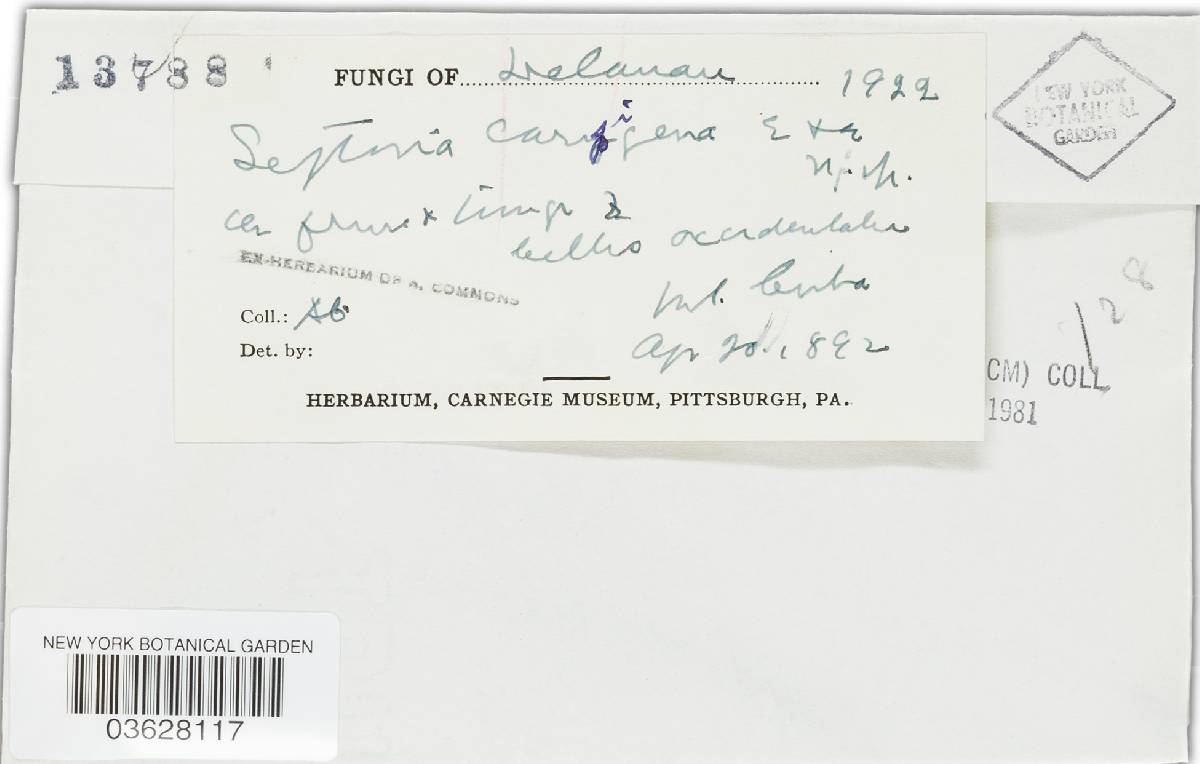 13788
FUNGI OF Delaware 1922
Septoria carpigena E & E
n. sp.
on fruit &
celtis occidentalis
EX-HERBARIUM OF A. COMMONS
Mt. Cuba
Coll.: AC
Apr 20. 1892
Det. by:
HERBARIUM, CARNEGIE MUSEUM, PITTSBURGH, PA.
NEW YORK
BOTANICAL
GARDEN
28
CM) COLL
1981
NEW YORK BOTANICAL GARDEN
03628117